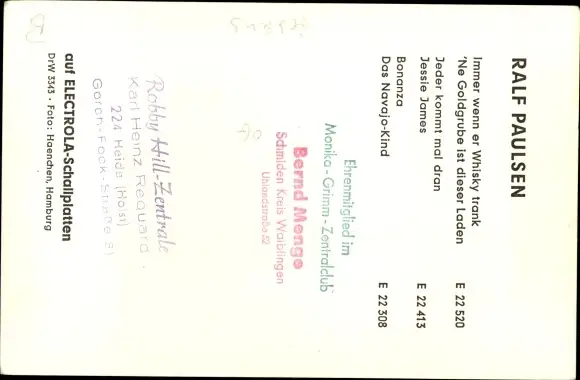 RALF PAULSEN
Immer wenn er Whisky trank
'Ne Goldgrube ist dieser Laden E 22 520
Jeder kommt mal dran
Jessie James E 22 413
Bonanza
Das Navajo-Kind E 22 308
Ehrenmitglied im
Monika-Grimm-Zentralclub
Bernd Menge
Schmiden Kreis Waiblingen
Uhlandstraße 12
Robby Hill-Zentrale
Karl Heinz Requard
224 Heide (Holst)
Goren-Fock-Straße 31
auf ELECTROLA-Schallplatten
DrW 3343 · Foto: Haenchen, Hamburg